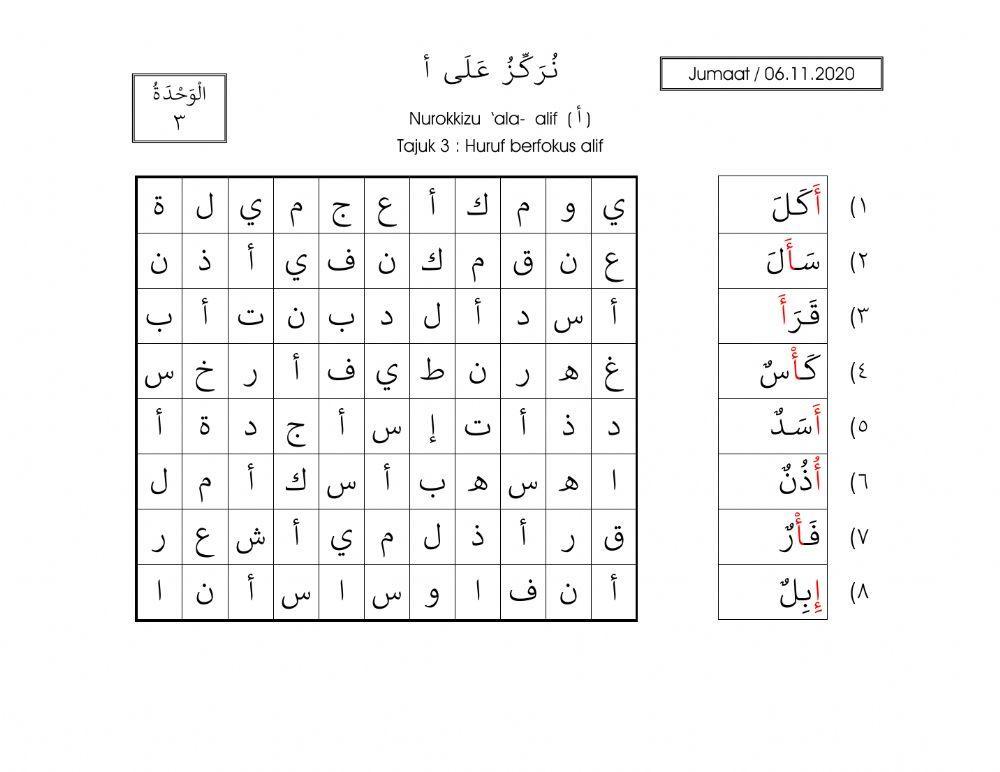 نُرَكِّزُ عَلَى أ
Jumaat / 06.11.2020
الْوَحْدَةُ
٣
Nurokkizu ‘ala- alif (أ)
Tajuk 3 : Huruf berfokus alif
ي و م ك أ ع ج م ي ل ة
ع ن ق م ك ن ف ي أ ذ ن
أ س د أ ل د ب ن ت أ ب
غ ه ر ن ط ي ف أ ر خ س
د ذ أ ت إ س أ ج د ة أ
ا ه س ه ب أ س ك أ م ل
ق ر أ ذ ل م ي أ ش ع ر
أ ن ف ا و س ا س أ ن ا
١) أَكَلَ
٢) سَأَلَ
٣) قَرَأَ
٤) كَأْسٌ
٥) أَسَدٌ
٦) أُذُنٌ
٧) فَأْرٌ
٨) إِبِلٌ